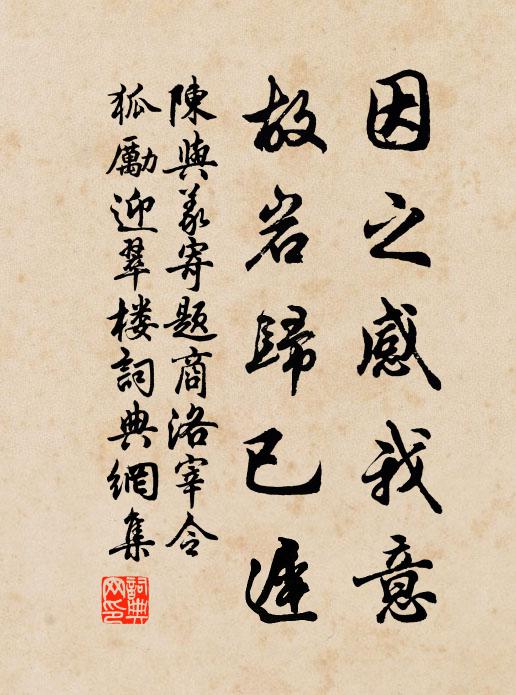 因之感我意
故岩歸已遲
陳與義寄題商洛宰令
狐勵迎翠樓詞典網集
詞典网印